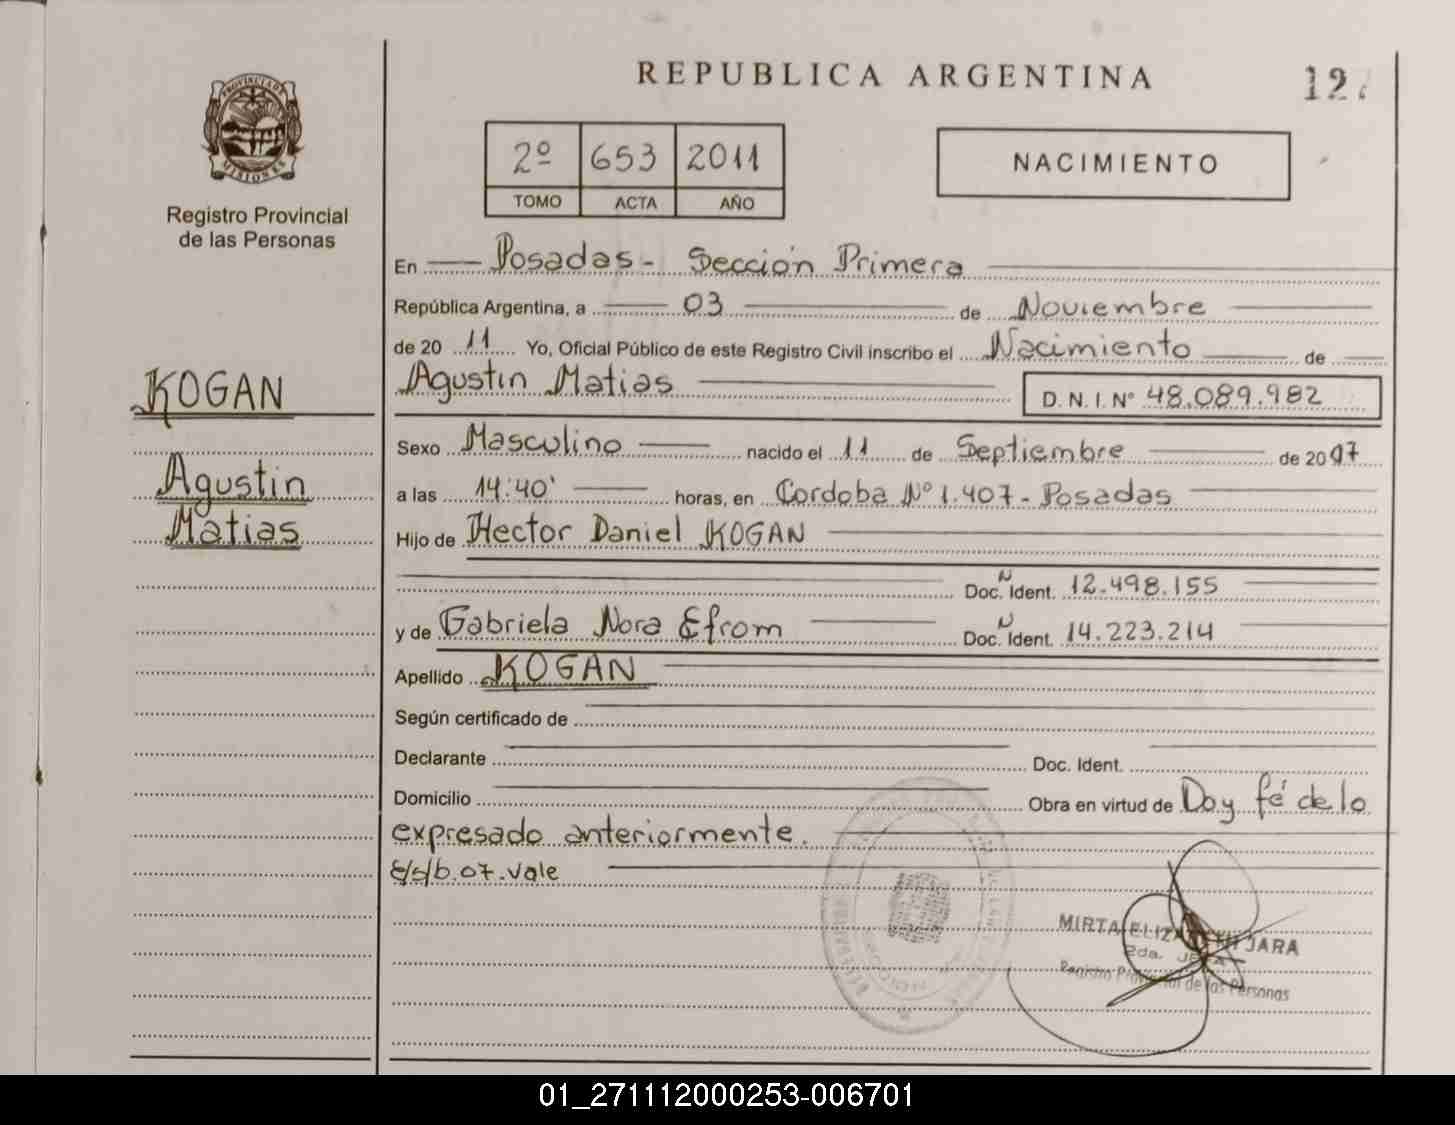 REPUBLICA ARGENTINA
127
PROVINCIA DE MISIONES
Registro Provincial
de las Personas
2º 653 2011
TOMO ACTA AÑO
NACIMIENTO
En Posadas - Sección Primera
República Argentina, a 03 de Noviembre
de 20 11 Yo, Oficial Público de este Registro Civil inscribo el Nacimiento de
Agustin Matias
D. N. I. Nº 48.089.982
KOGAN
Agustin
Matias
Sexo Masculino nacido el 11 de Septiembre de 2007
a las 14:40' horas, en Cordoba Nº 1.407 - Posadas
Hijo de Hector Daniel KOGAN
Doc. Ident. 12.498.155
y de Gabriela Nora Efrom Doc. Ident. 14.223.214
Apellido KOGAN
Según certificado de
Declarante Doc. Ident.
Domicilio Obra en virtud de Doy fé de lo
expresado anteriormente.
E/s/b.07.vale
MIRTA ELIZABETH JARA
2da. JEFA
Registro Provincial de las Personas
01_271112000253-006701